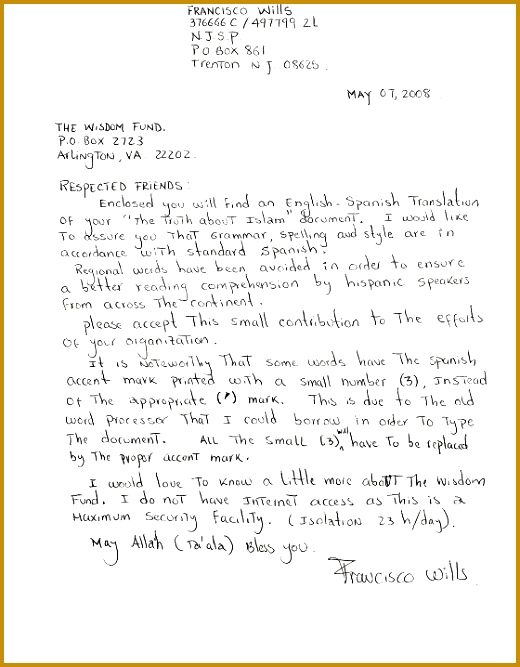 FRANCISCO Wills
376666 C / 497799 2L
N.J.S.P.
P O BOX 861
Trenton N J 08625.
MAY 07, 2008
THE WISDOM FUND.
P.O. BOX 2723
Arlington, VA 22202.
RESPECTED FRIENDS:
Enclosed you will find an English-Spanish Translation
of your "The Truth about Islam" document. I would like
To assure you That Grammar, spelling and style are in
accordance with standard Spanish.
Regional words have been avoided in order to ensure
a better reading comprehension by hispanic speakers
from across The continent.
please accept This small contribution to The efforts
of your organization.
It is Noteworthy That some words have The spanish
accent mark printed with a small number (3), instead
of The appropriate (') mark. This is due to The old
word processor That I could borrow in order To Type
The document. All The small (3) will have To be replaced
by The proper accent mark.
I would love To know a little more about The Wisdom
Fund. I do not have Internet access as This is a
Maximum Security Facility. (Isolation 23 h/day).
May Allah (Ta'ala) Bless you.
Francisco Wills